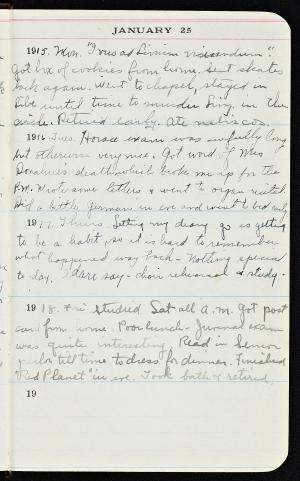 JANUARY 25
1915. Mon. "Vous ad Sinism visendum."
Got box of cookies from home. Sent skates
back again. Went to chapel, stayed in
libe until time to murder Livy, in the
circle. Retired early. Ate nabiscos.
1916 Tues. Horace exam was awfully long
but otherwise very nice. Got word of Mrs
Donahue's death which broke me up for the
P.M. Wrote some letters & went to organ recital
Did a little German in eve and went to bed early
1917. Thurs. Letting my diary go is getting
to be a habit, so it is hard to remember
what happened way back - Nothing special
to day. I dare say - choir rehearsal & study.
1918. Fri Studied Sat all a.m. Got post
card from home. Poor lunch - Journal exam
was quite interesting. Read in Senior
parlor till time to dress for dinner. Finished
"Red Planet" in eve. Took bath & retired.
19